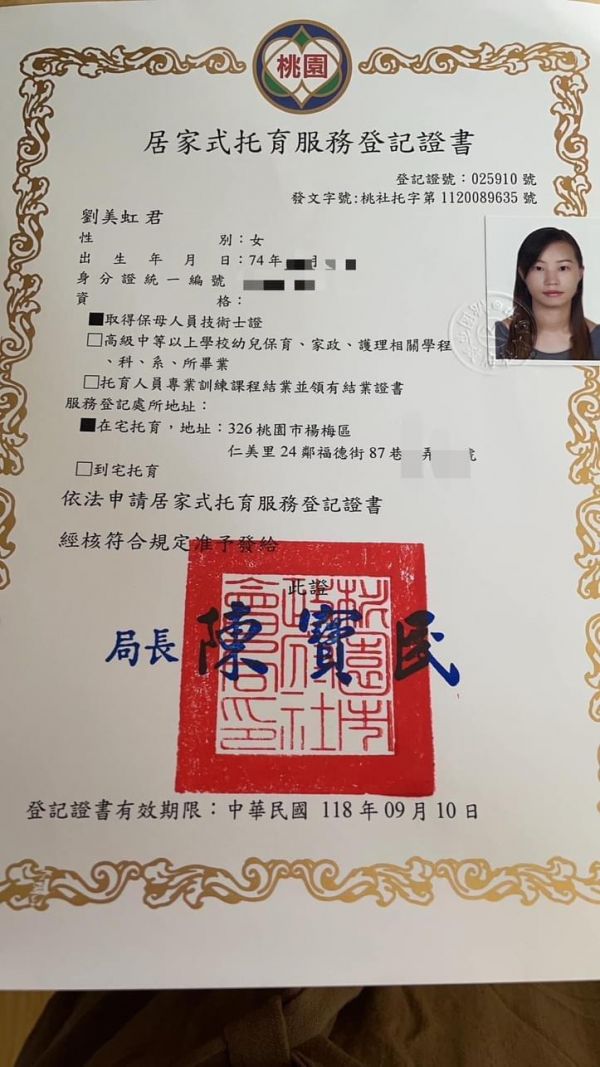 桃園
居家式托育服務登記證書
登記證號：025910 號
發文字號:桃社托字第 1120089635 號
劉美虹 君
性別：女
出生年月日：74年 月
身分證統一編號
資格：
■取得保母人員技術士證
□高級中等以上學校幼兒保育、家政、護理相關學程
、科、系、所畢業
□托育人員專業訓練課程結業並領有結業證書
服務登記處所地址：
■在宅托育，地址：326 桃園市楊梅區
仁美里 24 鄰福德街 87 巷 弄 號
□到宅托育
依法申請居家式托育服務登記證書
經核符合規定准予發給
此證
局長 陳寶民
桃園市政府社會局印
登記證書有效期限：中華民國 118 年 09 月 10 日